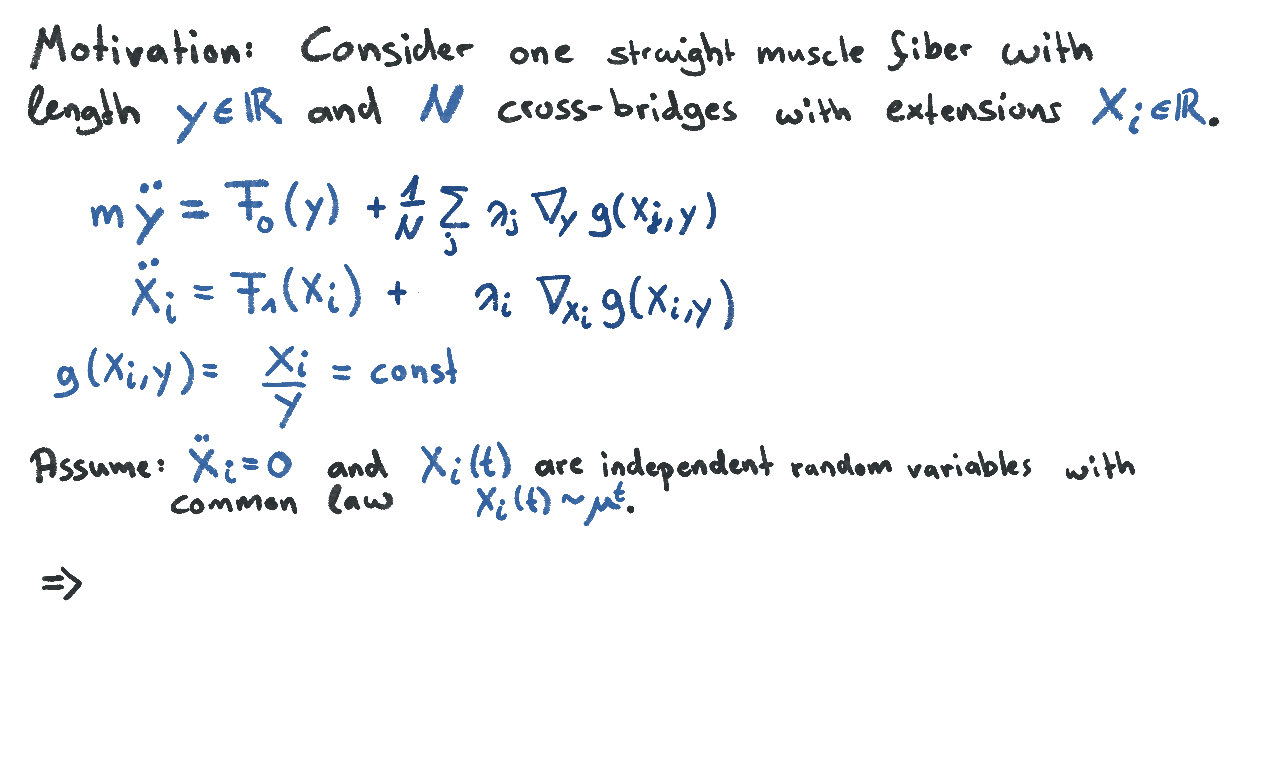 Motivation: Consider one straight muscle fiber with
length y∈ℝ and N cross-bridges with extensions Xᵢ∈ℝ.
m ÿ = F₀(y) + 1/N ∑ⱼ λⱼ ∇_y g(Xⱼ,y)
Ẍᵢ = F₁(Xᵢ) + λᵢ ∇_{Xᵢ} g(Xᵢ,y)
g(Xᵢ,y) = Xᵢ/y = const
Assume: Ẍᵢ=0 and Xᵢ(t) are independent random variables with
common law Xᵢ(t) ~ μᵗ.
=>